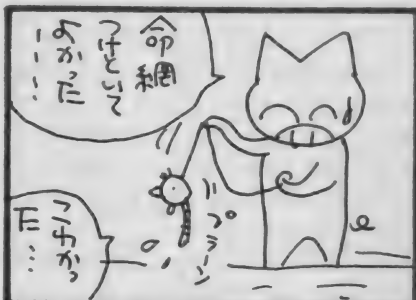 命綱
つけといて
よかった
ーーー!
プラーン
こわかっ
た…